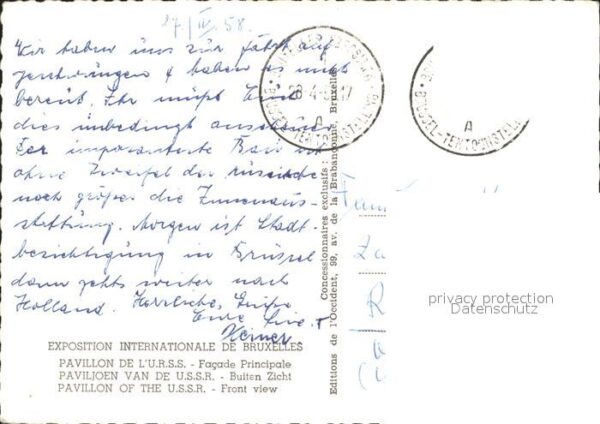 27/IV.58.
Wir haben uns zur Fahrt auf-
geschwungen & haben es nicht
bereut. Ihr müßt Euch
dies unbedingt anschauen.
Der imposanteste Bau ist
ohne Zweifel der russische
noch größer die Innenaus-
stattung. Morgen ist Stadt-
besichtigung in Brüssel
dann gehts weiter nach
Holland. Herzliche Grüße
Eure
Heiner
EXPOSITION INTERNATIONALE DE BRUXELLES
PAVILLON DE L'U.R.S.S. - Façade Principale
PAVILJOEN VAN DE U.S.S.R. - Buiten Zicht
PAVILION OF THE U.S.S.R. - Front view
Concessionnaires exclusifs
Editions de l'Occident, 99, av. de la Brabançonne, Bruxelles
28-4 17
A
BRUSSEL-TENTOONSTELL
A
BRUSSEL-TENTOONSTELL
Fam
privacy protection
Datenschutz